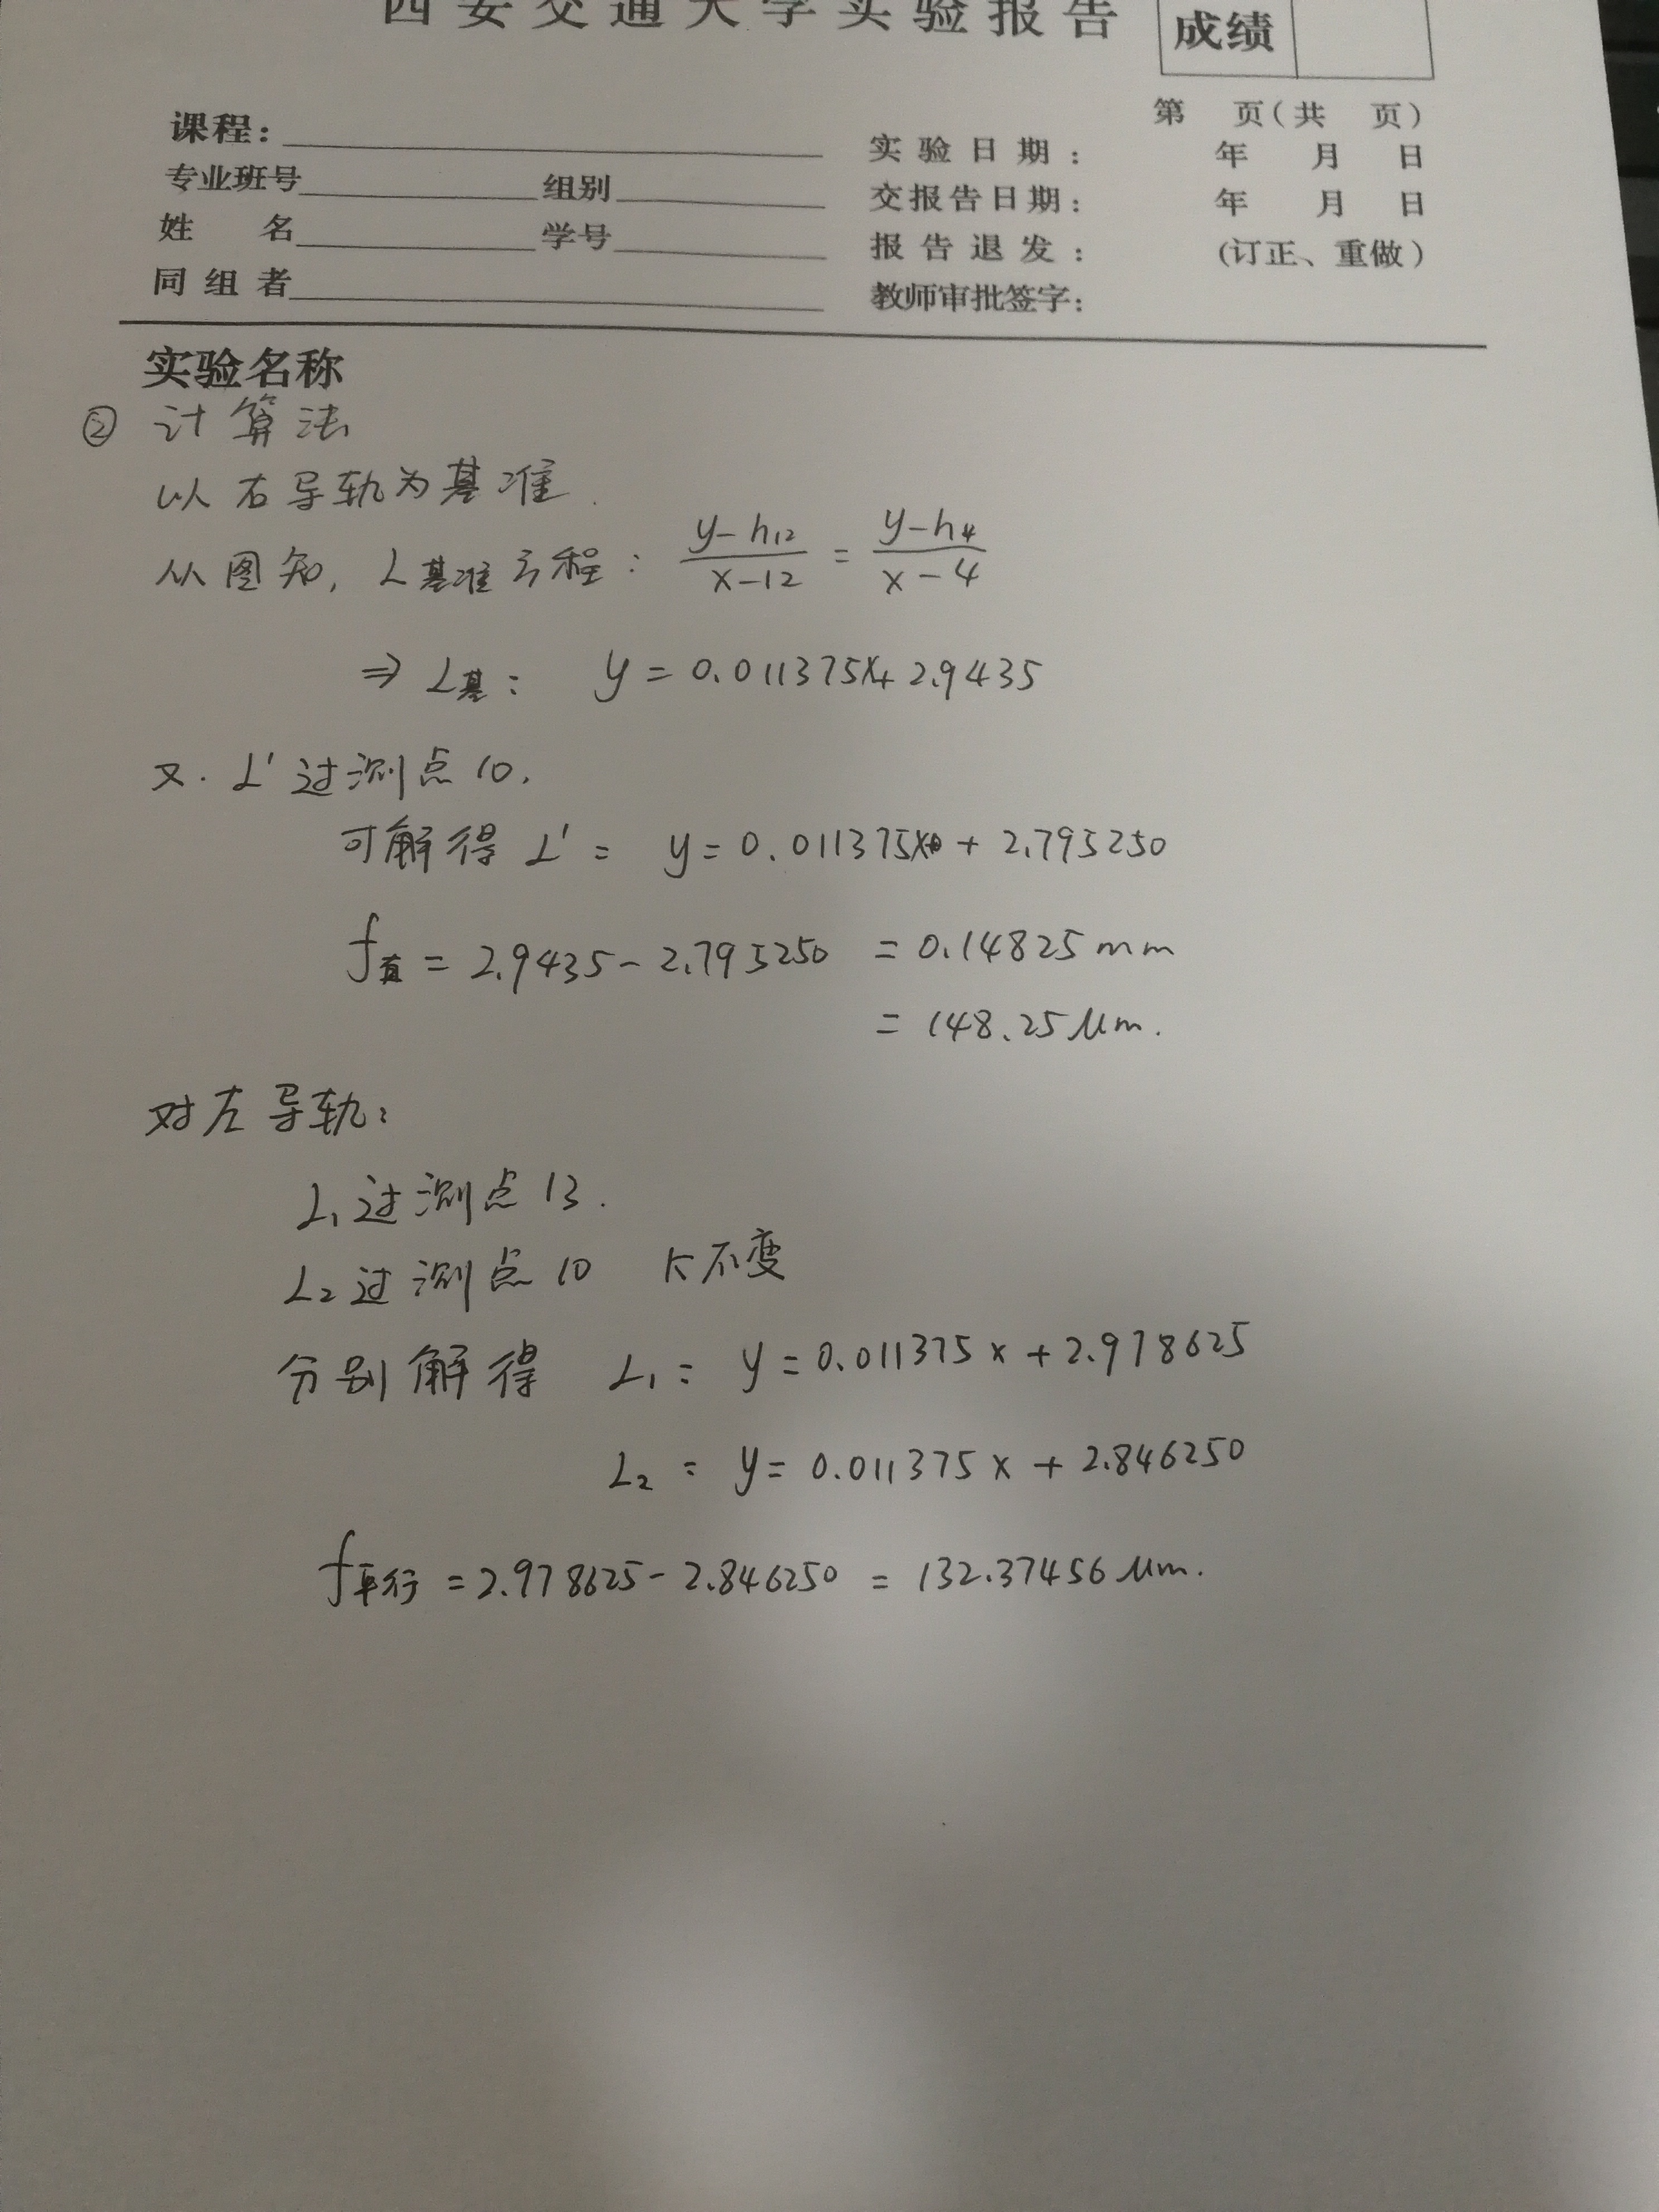 西安交通大学实验报告
成绩
第 页(共 页)
课程:
实验日期: 年 月 日
专业班号 组别
交报告日期: 年 月 日
姓 名 学号
报告退发: (订正、重做)
同组者
教师审批签字:
实验名称
② 计算法
以右导轨为基准.
从图知, L基准方程: (y-h12)/(x-12) = (y-h4)/(x-4)
⇒ L基: y = 0.011375x+2.9435
又. L' 过测点10,
可解得 L' = y=0.011375x + 2.795250
f直 = 2.9435-2.795250 = 0.14825mm
= 148.25μm.
对左导轨:
L1过测点13.
L2过测点10 k不变
分别解得 L1: y=0.011375x+2.978625
L2: y=0.011375x+2.846250
f平行 = 2.978625-2.846250 = 132.37456μm.